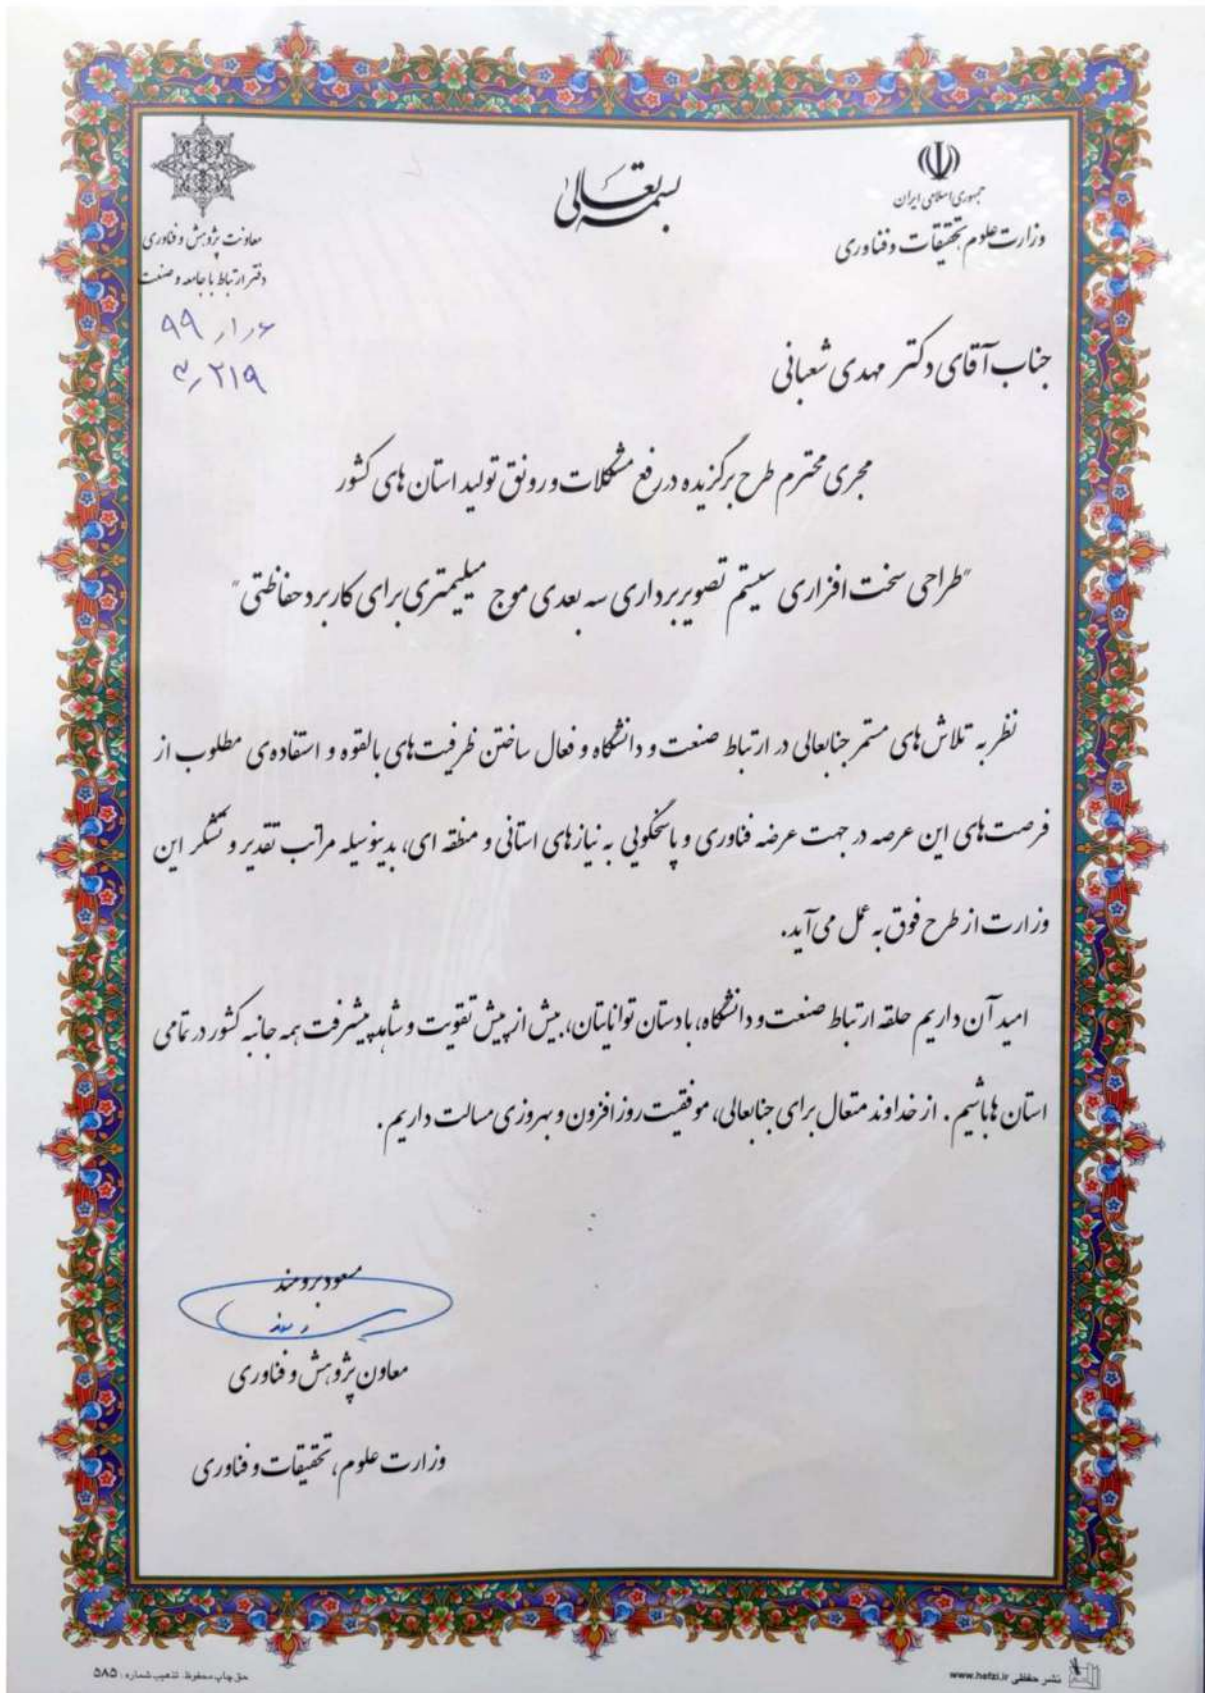 بسمه تعالی
جمهوری اسلامی ایران
وزارت علوم، تحقیقات و فناوری
معاونت پژوهش و فناوری
دفتر ارتباط با جامعه و صنعت
۹۹/۱/۶
۳/۲۱۹
جناب آقای دکتر مهدی شعبانی
مجری محترم طرح برگزیده در رفع مشکلات و رونق تولید استان های کشور
"طراحی سخت افزاری سیستم تصویربرداری سه بعدی موج میلیمتری برای کاربرد حفاظتی"
نظر به تلاش های مستمر جنابعالی در ارتباط صنعت و دانشگاه و فعال ساختن ظرفیت های بالقوه و استفاده ی مطلوب از
فرصت های این عرصه در جهت عرضه فناوری و پاسخگویی به نیازهای استانی و منطقه ای، بدینوسیله مراتب تقدیر و تشکر این
وزارت از طرح فوق به عمل می آید.
امید آن داریم حلقه ارتباط صنعت و دانشگاه، با دستان توانایتان، بیش از پیش تقویت و شاهد پیشرفت همه جانبه کشور در تمامی
استان ها باشیم. از خداوند متعال برای جنابعالی، موفقیت روز افزون و بهروزی مسالت داریم.
مسعود برومند
معاون پژوهش و فناوری
وزارت علوم، تحقیقات و فناوری
نشر حفظی www.hefzi.ir
حق چاپ محفوظ. تذهیب شماره: ۵۸۵